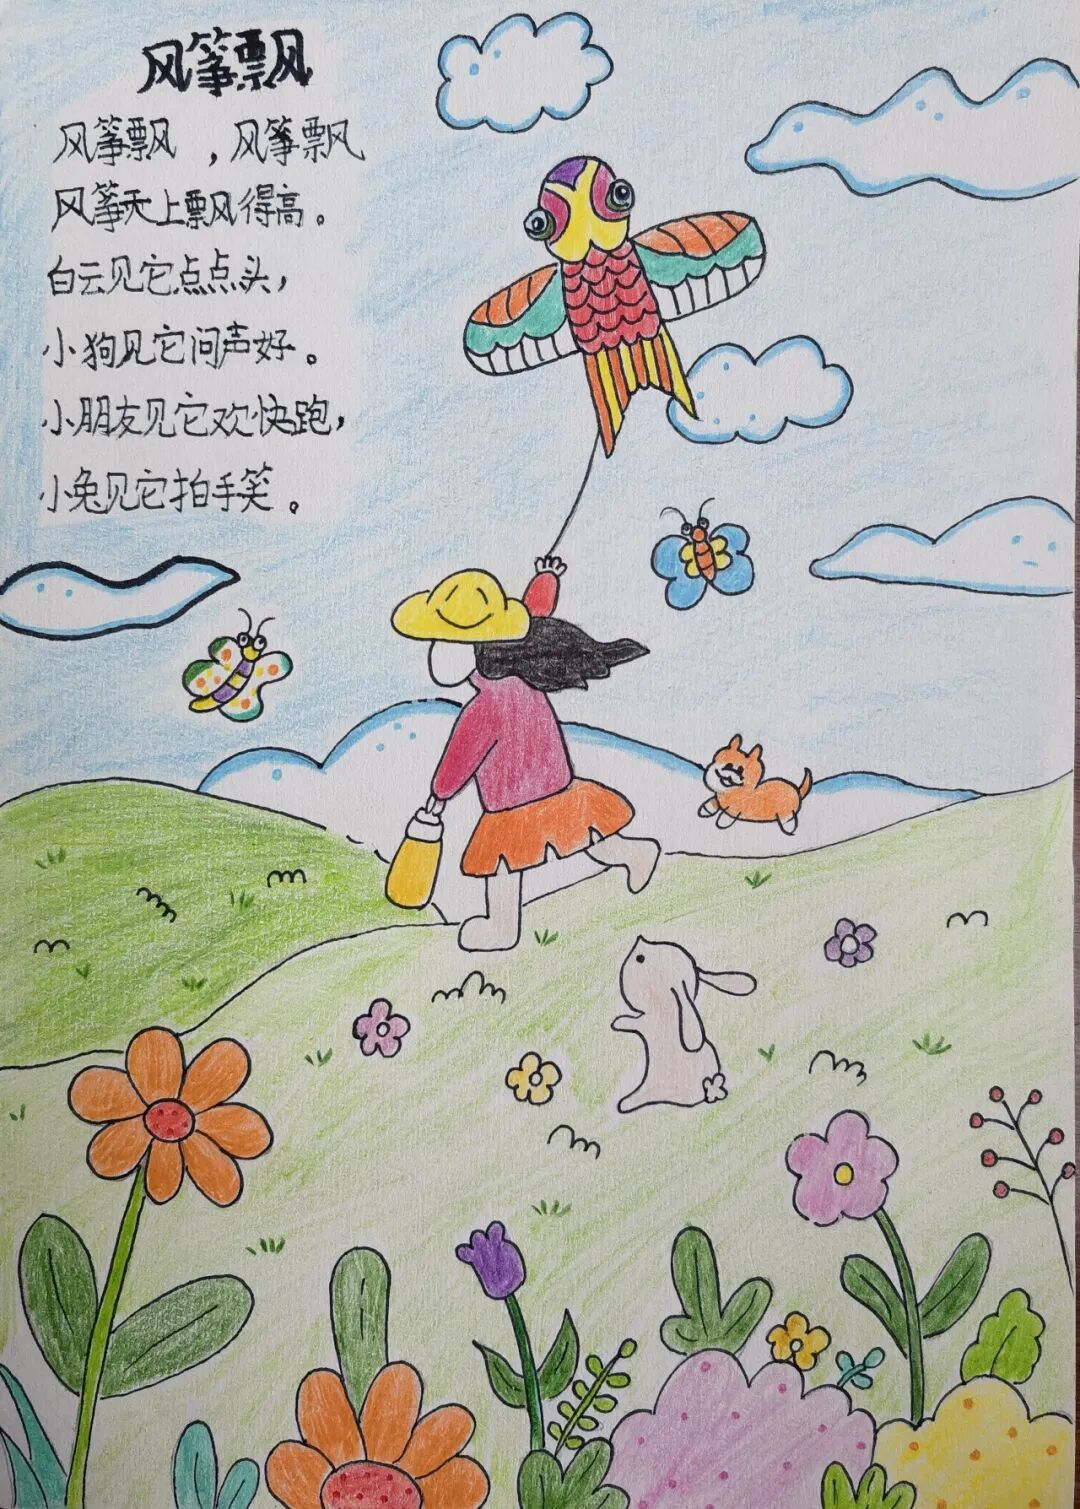 风筝飘风
风筝飘，风筝飘
风筝天上飘得高。
白云见它点点头，
小狗见它问声好。
小朋友见它欢快跑，
小兔见它拍手笑。